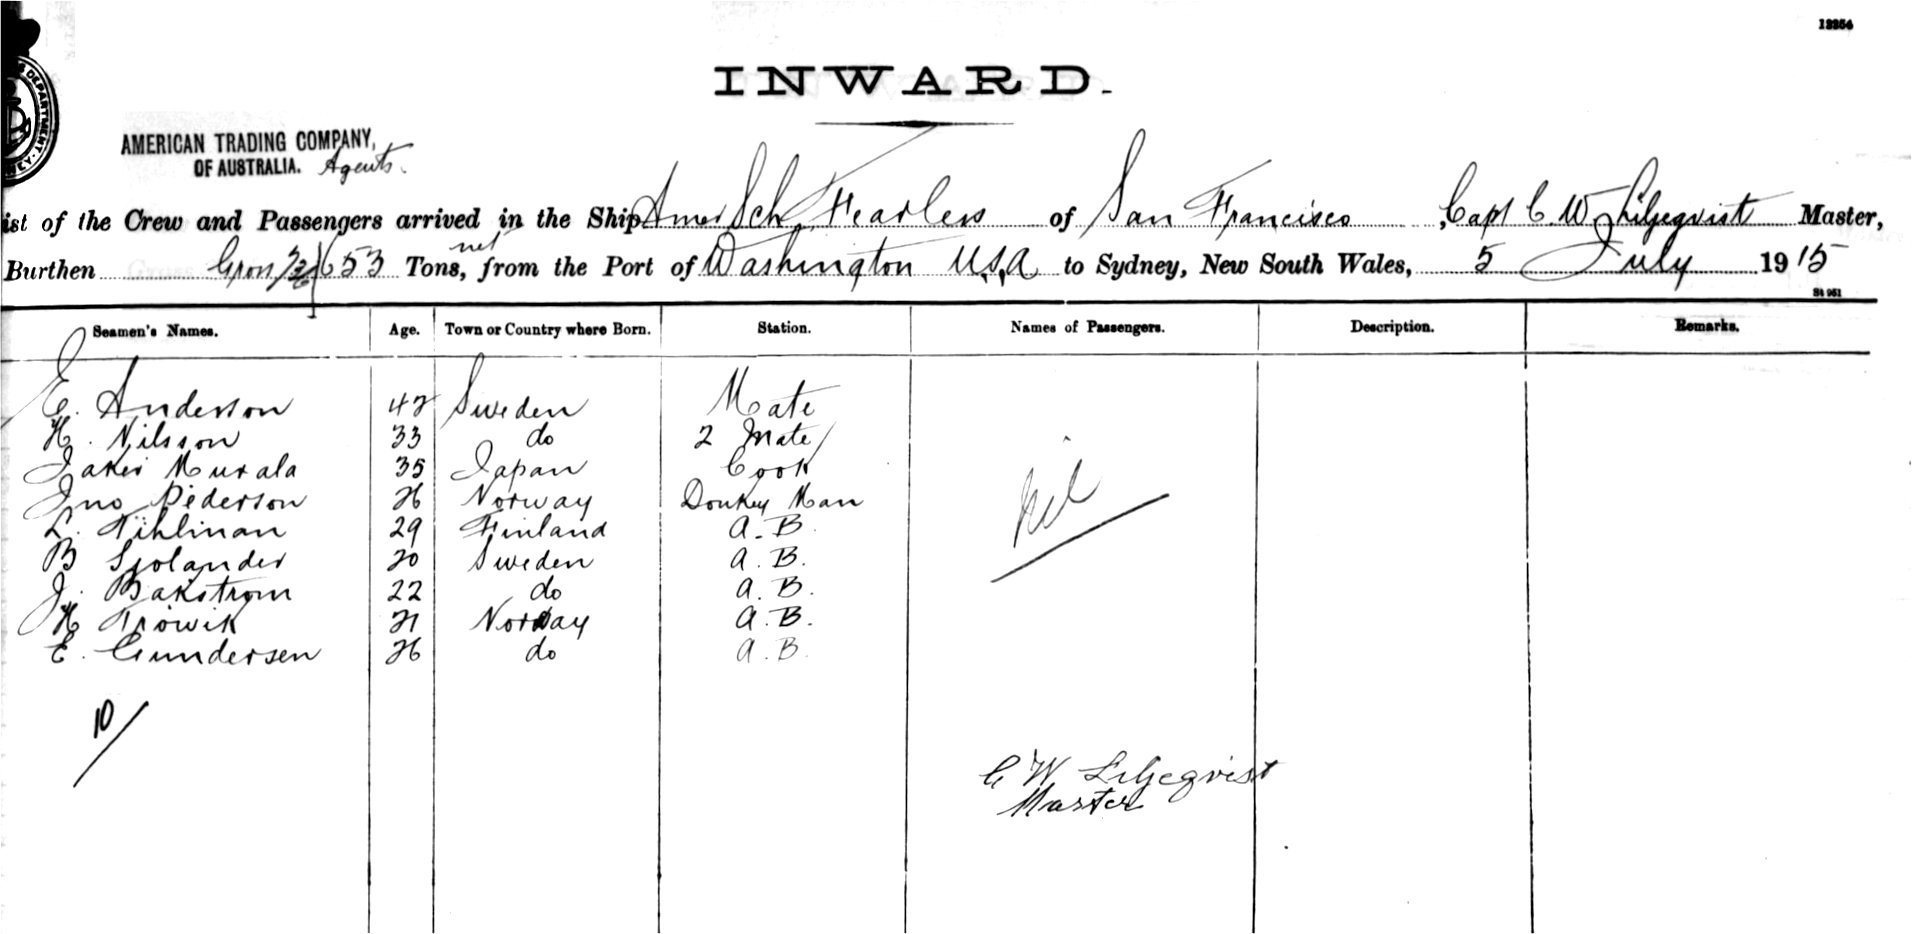 12254
INWARD.
DEPARTMENT
AMERICAN TRADING COMPANY,
OF AUSTRALIA. Agents.
ist of the Crew and Passengers arrived in the Ship Amer Sch Fearless of San Francisco, Capt C. W. Liljeqvist Master,
net
Burthen Gross 653 Tons, from the Port of Washington U.S.A to Sydney, New South Wales, 5 July 1915
St 951
Seamen's Names. Age. Town or Country where Born. Station. Names of Passengers. Description. Remarks.
E. Anderson 42 Sweden Mate
H. Nilsson 33 do 2 Mate
Murala 35 Japan Cook
Jno Pederson 26 Norway Donkey Man
L. Tihlman 29 Finland A.B.
B Sjolander 20 Sweden A.B.
J. Bakstrom 22 do A.B.
H 21 Norway A.B.
E. Gundersen 26 do A.B.
nil
10/
C W Liljeqvist
Master